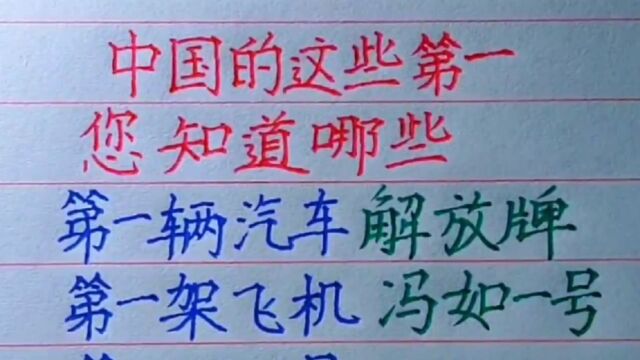 中国的这些第一
您知道哪些
第一辆汽车 解放牌
第一架飞机 冯如一号